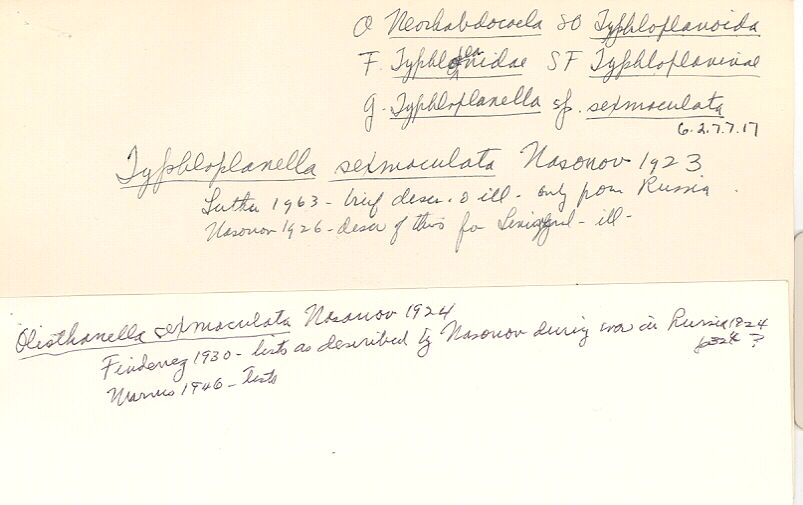 O Neorhabdocoela SO Typhloplanoida
F. Typhloplanidae SF Typhloplaninae
g. Typhloplanella sp. sexmaculata
6.2.7.7.17
Typhloplanella sexmaculata Nasonov 1923
Luther 1963 - brief descr. o ill - only from Russia
Nasonov 1926 - descr of this fr - ill -
Olisthanella sexmaculata Nasonov 1924
1930 - lists as described by Nasonov during war in Russia 1824
1924 ?
Marcus 1946 - lists